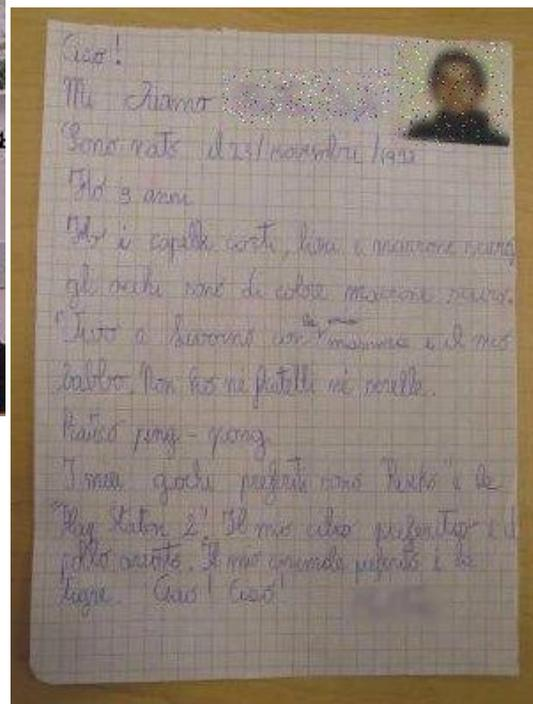 Ciao!
Mi chiamo
Sono nato il 23/novembre/199
Ho 9 anni
Ho i capelli corti, lisci e marrone scuro
gli occhi sono di colore marrone scuro.
Vivo a Livorno con la mia mamma e il mio
babbo. Non ho né fratelli né sorelle.
ping-pong
I miei giochi preferiti sono " " e la
"Play Station 2". Il mio cibo preferito è il
pollo arrosto. Il mio animale preferito è la
tigre. Ciao! Ciao!